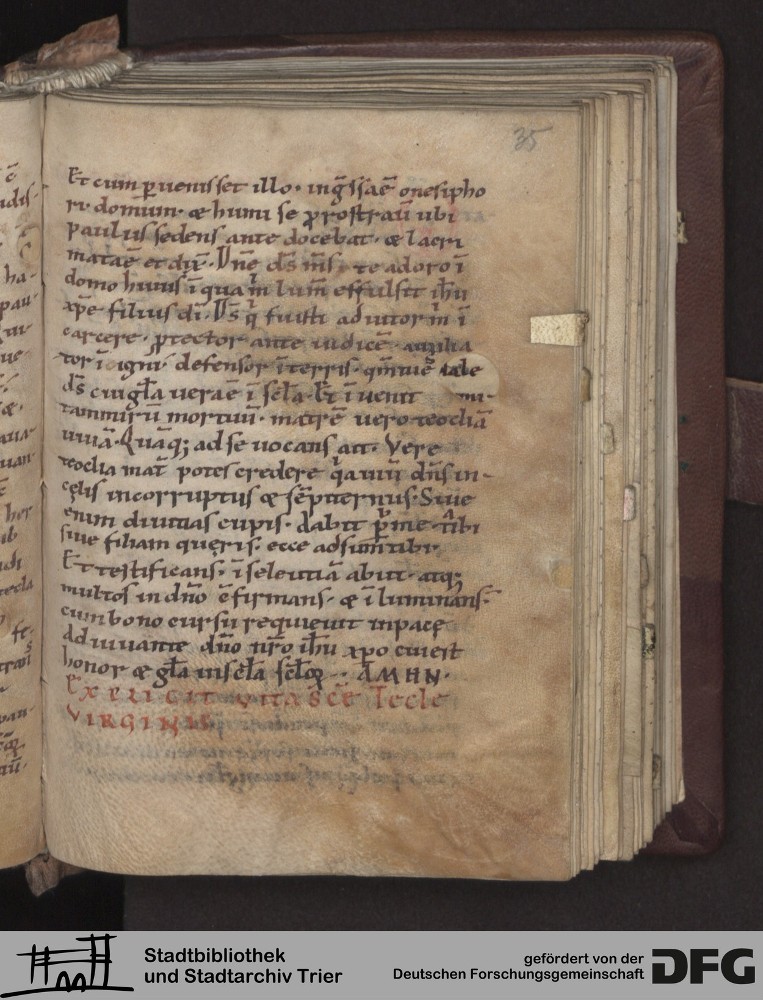 35
Et cum ꝑuenisset illo · ing̃ssaẽ onesipho
ri · domum · & humi se ꝓstrauĩ ubi
paulus sedens ante docebat · & lacri
mataẽ et dix̃ · Dñe d̃s m̃s te adoro ĩ
domo huius ĩ qua m̃ lum̃ effulsit ih̃u
xp̃e filius di · D̃s q̃ fuisti adiutor m̃ ĩ
carcere · ꝓtector ante iudicẽ · auxilia
tor ĩ igni · defensor ĩ terris ·
d̃s cui gl̃a uera ẽ ĩ sc̃la · Et ĩuenit
tammirũ mortuũ · matrẽ uero teocliã
uiuã · Quãq; ad se uocans ait · Vere
teoclia mat̃ potes credere q̃a uiuũ dñs in-
cęlis incorruptus & sẽpiternus · Siue
enim diuitias cupis · dabit p̃ me tibi
siue filiam queris · ecce adsum tibi
Et testificans · ĩ seleutiã abiit · atq;
multos in dño c̃firmans · & ĩluminans ·
cum bono cursu requieuit in pacę
Adiuuante dño nr̃o ih̃u xp̃o cui est
honor & gl̃a in sc̃la sc̃loꝝ · AMHN ·
EXPLICIT VITA SCE Tecle
VIRGINIS
Stadtbibliothek
und Stadtarchiv Trier
gefördert von der
Deutschen Forschungsgemeinschaft
DFG